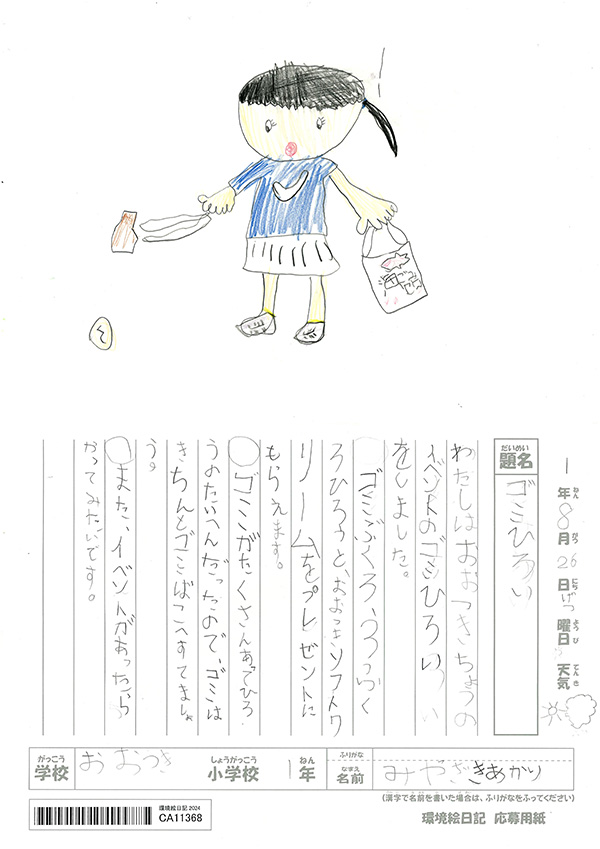 1年8月26日げつ曜日 天気
ねん がつ にち ようび てんき
だいめい
題名 ゴミひろい
わたしはおおつきちょうの
イベントのゴミひろい
をしました。
ゴミぶくろ、3つぶく
ろひろうと、おおつきソフトク
リームをプレゼントに
もらえます。
ゴミがたくさんあってひろ
うのたいへんだったので、ゴミは
きちんとゴミばこへすてましょ
う。
また、イベントがあったら
やってみたいです。
がっこう しょうがっこう ねん ふりがな
学校 おおつき 小学校 1年 なまえ 名前 みやざきあかり
(漢字で名前を書いた場合は、ふりがなをふってください)
環境絵日記 2024
CA11368
環境絵日記 応募用紙